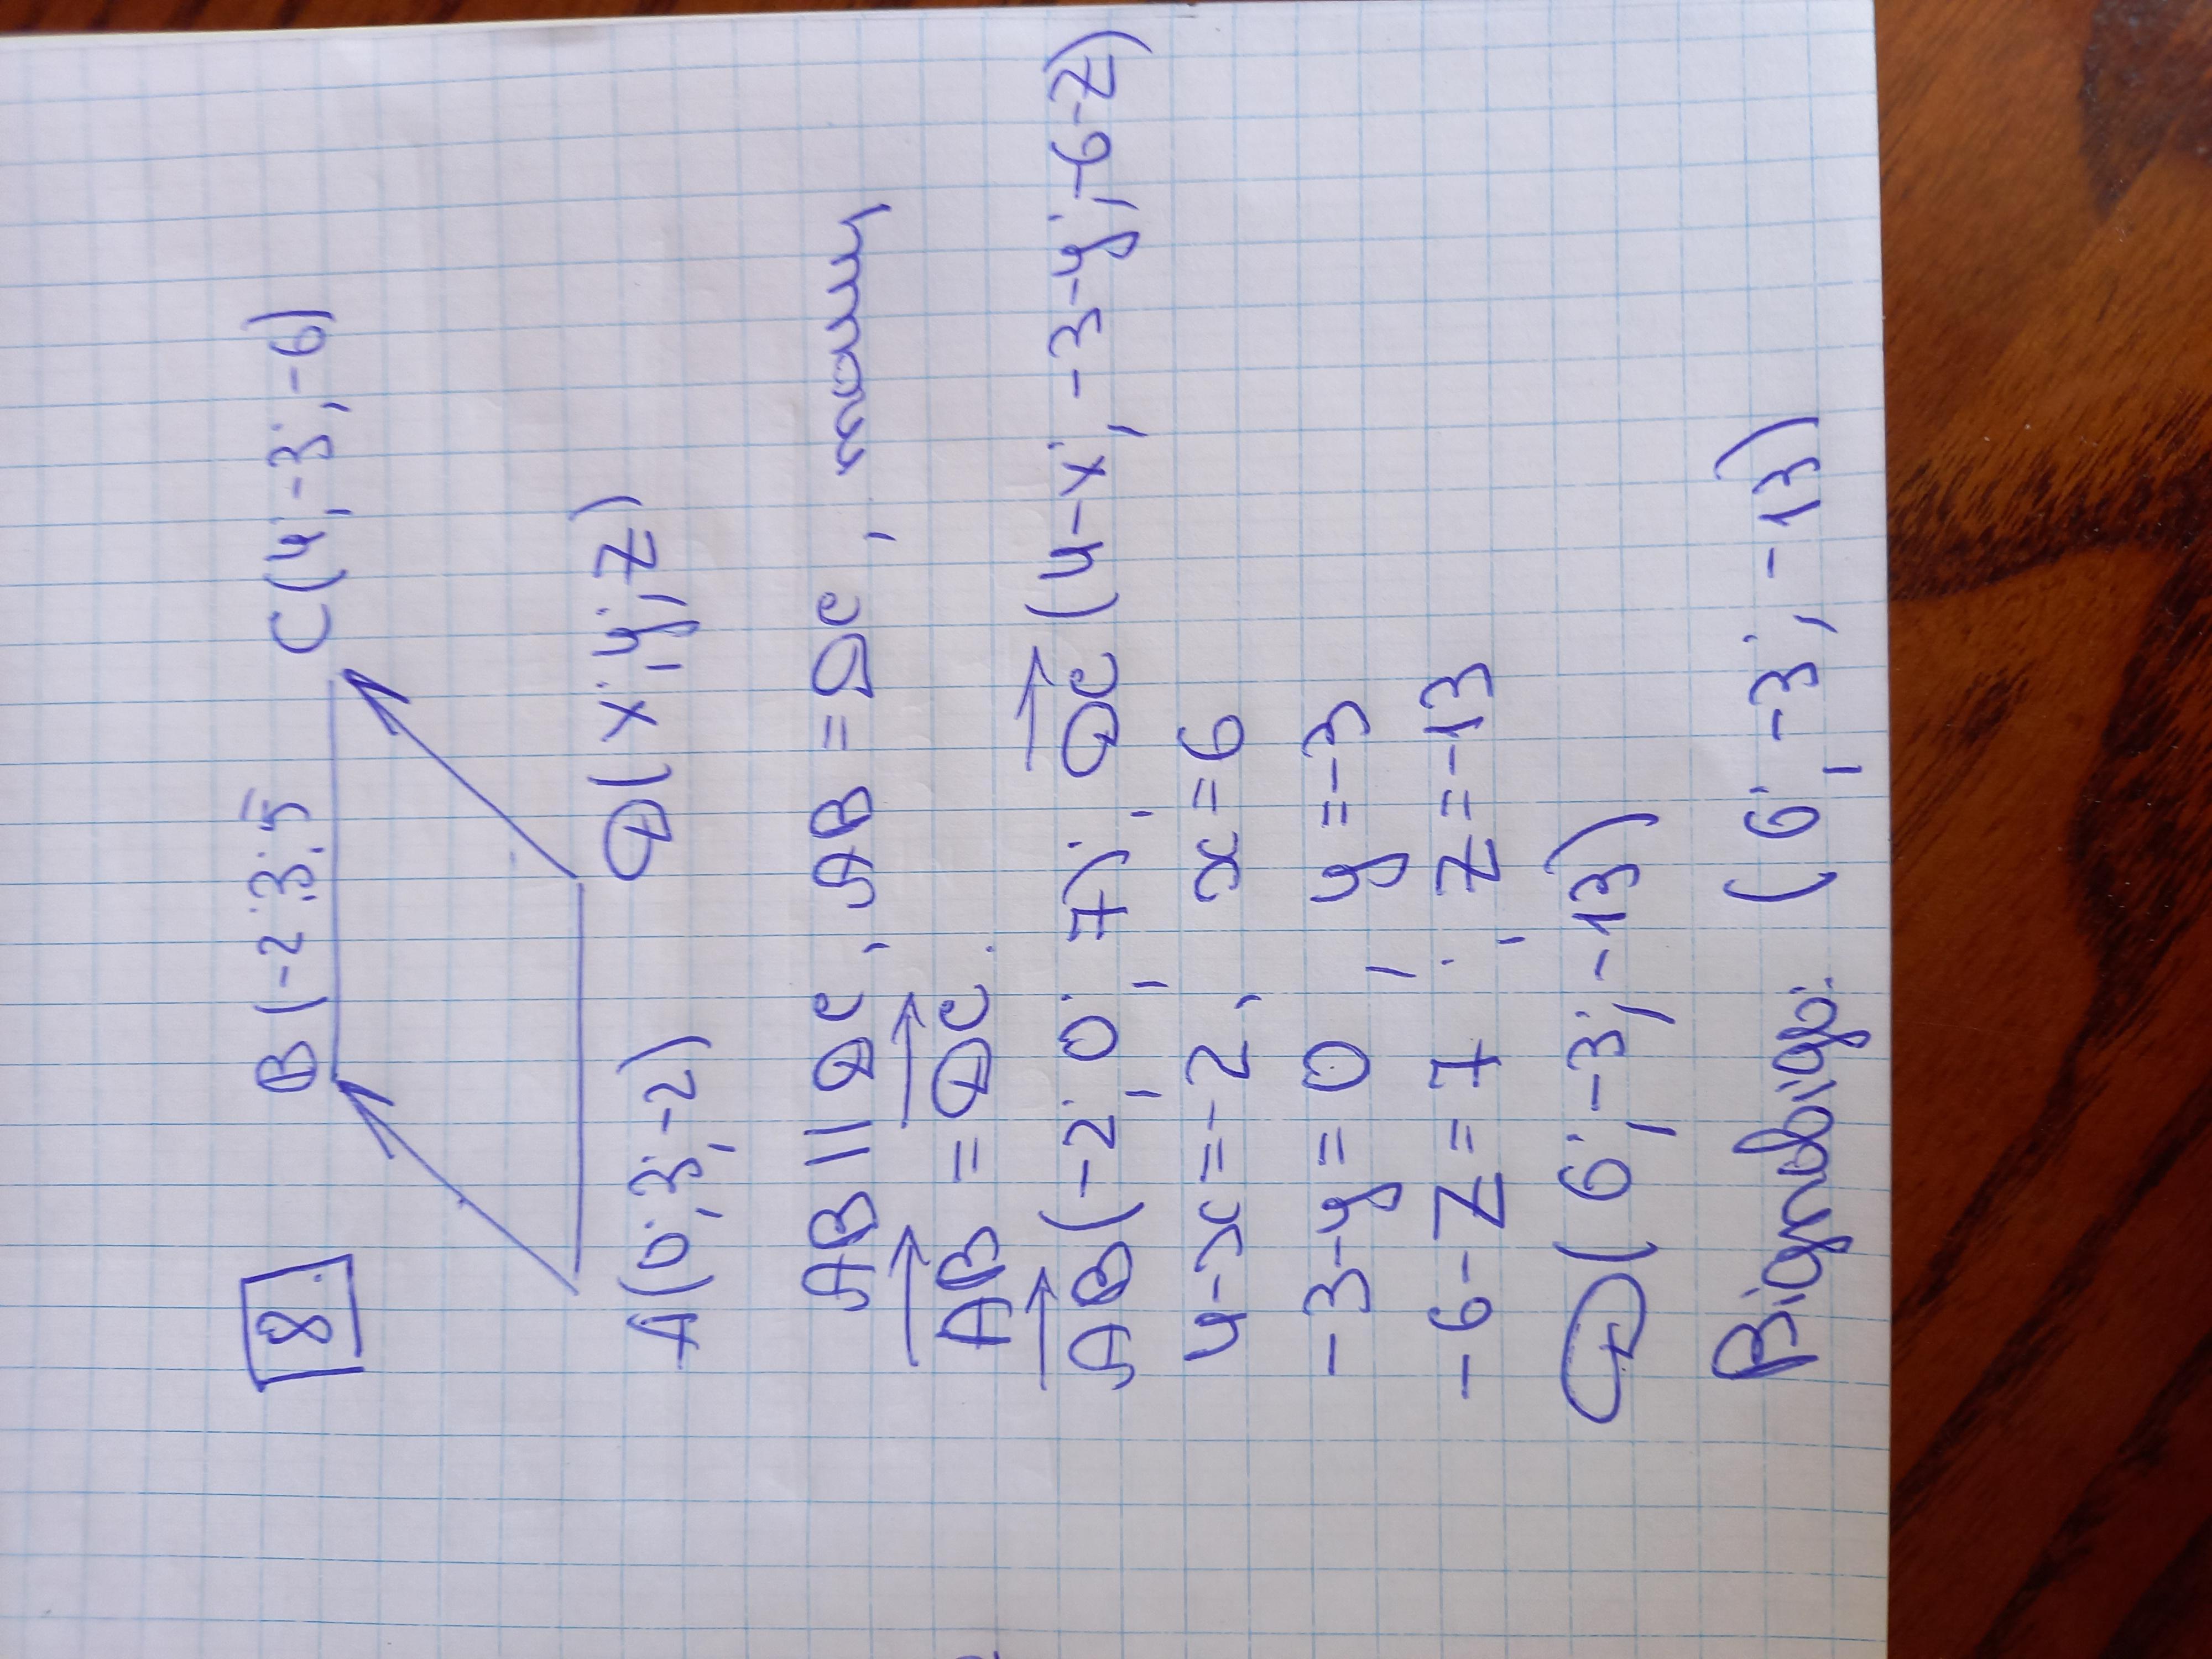 8.
B(-2;3;5 C(4;-3;-6)
A(0;3;-2) D(x;y;z)
AB || DC, AB = DC, тому
AB = DC.
AB(-2;0;7); DC(4-x;-3-y;-6-z)
4-x=-2, x=6
-3-y=0, y=-3
-6-z=7; z=-13
D(6;-3;-13)
Відповідь: (6;-3;-13)